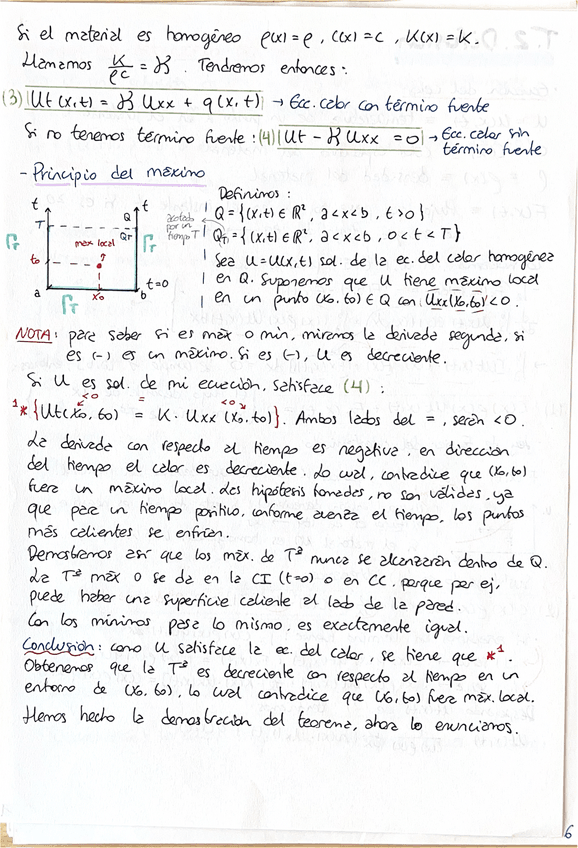 Si el material es homogéneo ρ(x) = ρ, C(x) = C, K(x) = K.
Llamamos K/ρC = 𝒦. Tendremos entonces:
(3) Ut(x,t) = 𝒦 Uxx + q(x,t) → Ecc. calor con término fuente
Si no tenemos término fuente: (4) Ut - 𝒦 Uxx = 0 → Ecc. calor sin
término fuente
- Principio del máximo
t
T
to
a
Γr
max local
xo
Γr
t
Q
QT
Γr
b
t=0
Definimos:
Q = {(x,t) ∈ ℝ², a<x<b, t>0}
acotada por un tiempo T
QT = {(x,t) ∈ ℝ², a<x<b, 0<t<T}
Sea U=U(x,t) sol. de la ec. del calor homogénea
en Q. Suponemos que U tiene máximo local
en un punto (xo, to) ∈ Q con Uxx(xo,to) < 0.
NOTA: para saber si es máx o mín, miramos la derivada segunda, si
es (-) es un máximo. Si es (-), U es decreciente.
Si U es sol. de mi ecuación, satisface (4):
<0 <0
1* {Ut(xo,to) = K · Uxx (xo,to)}. Ambos lados del =, serán <0.
La derivada con respecto al tiempo es negativa, en dirección
del tiempo el calor es decreciente. Lo cual, contradice que (xo,to)
fuera un máximo local. Las hipótesis tomadas, no son válidas, ya
que para un tiempo positivo, conforme avanza el tiempo, los puntos
más calientes se enfrían.
Demostramos así que los máx. de Tª nunca se alcanzarán dentro de Q.
La Tª máx o se da en la CI (t=0) o en CC. porque por ej,
puede haber una superficie caliente al lado de la pared.
Con los mínimos pasa lo mismo, es exactamente igual.
Conclusión: como U satisface la ec. del calor, se tiene que *1.
Obtenemos que la Tª es decreciente con respecto al tiempo en un
entorno de (xo,to), lo cual contradice que (xo,to) fuera máx. local.
Hemos hecho la demostración del teorema, ahora lo enunciamos.
6